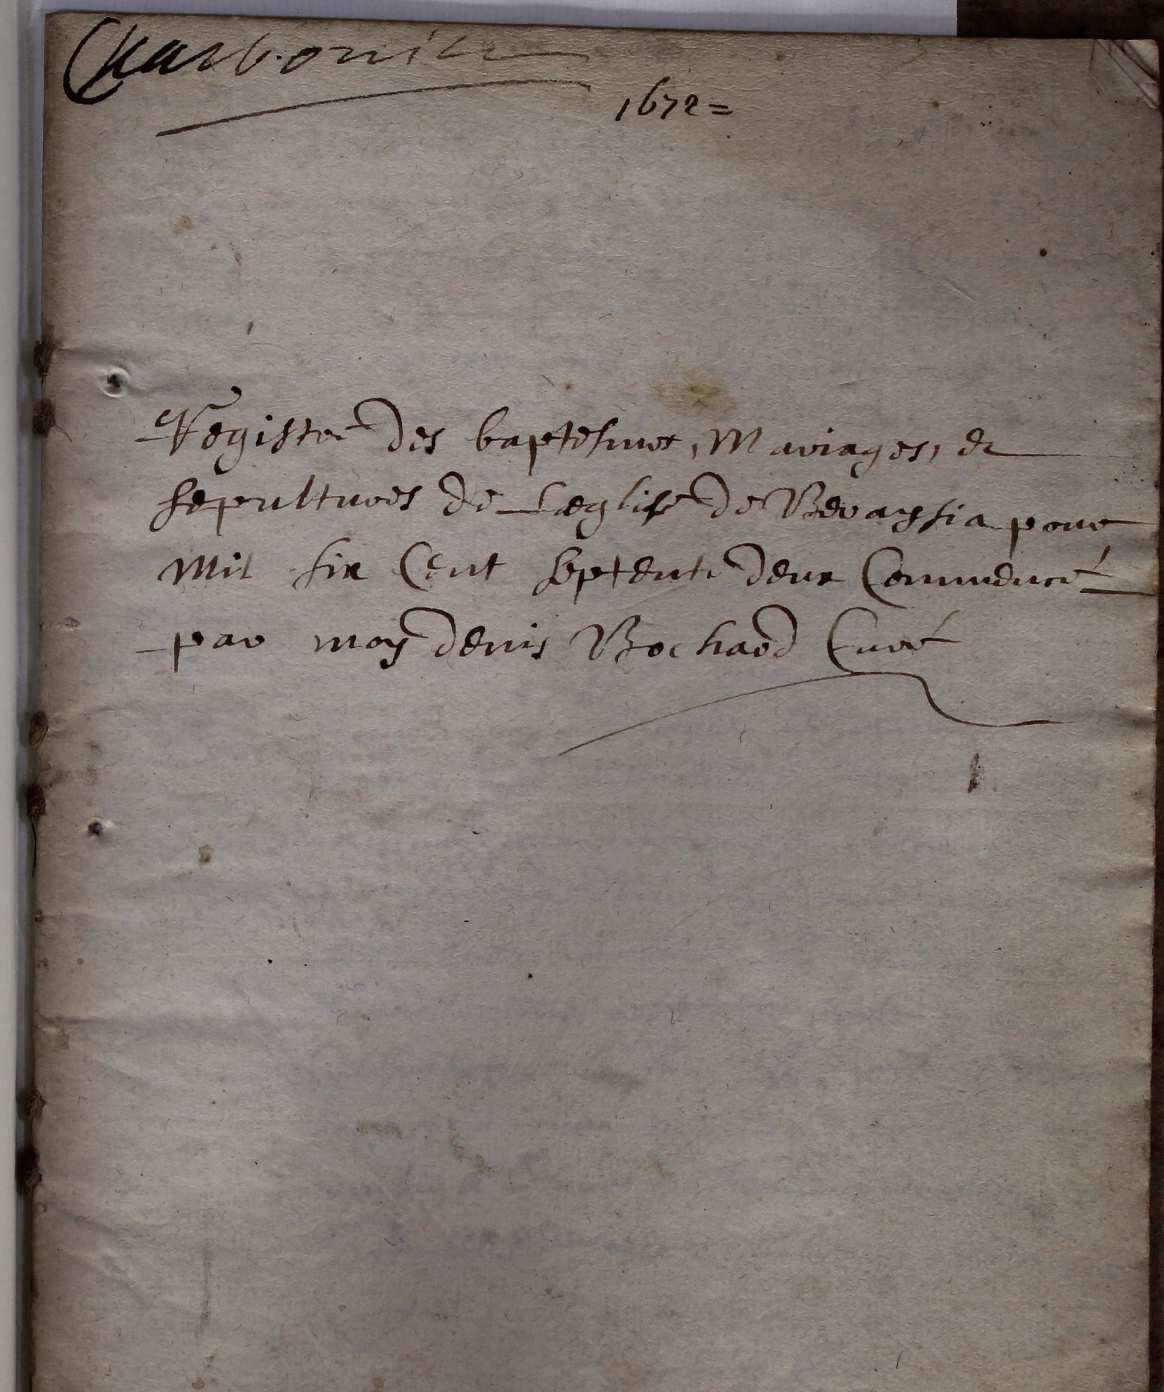 Charbonier
1672=
Registre des baptesmes, Mariages, et
sepultures de Leglise de pour
Mil six Cent septente deux Commencé
par moy denis Bochard Curé